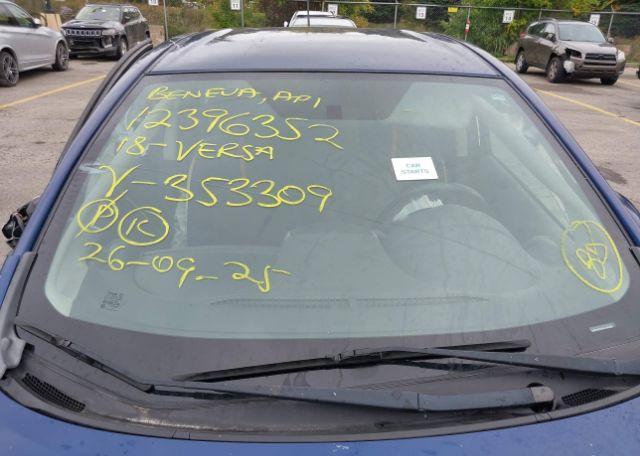 BENEVA, API
12396352
18-VERSA
V-353309
P K
26-09-25
CAR
STARTS